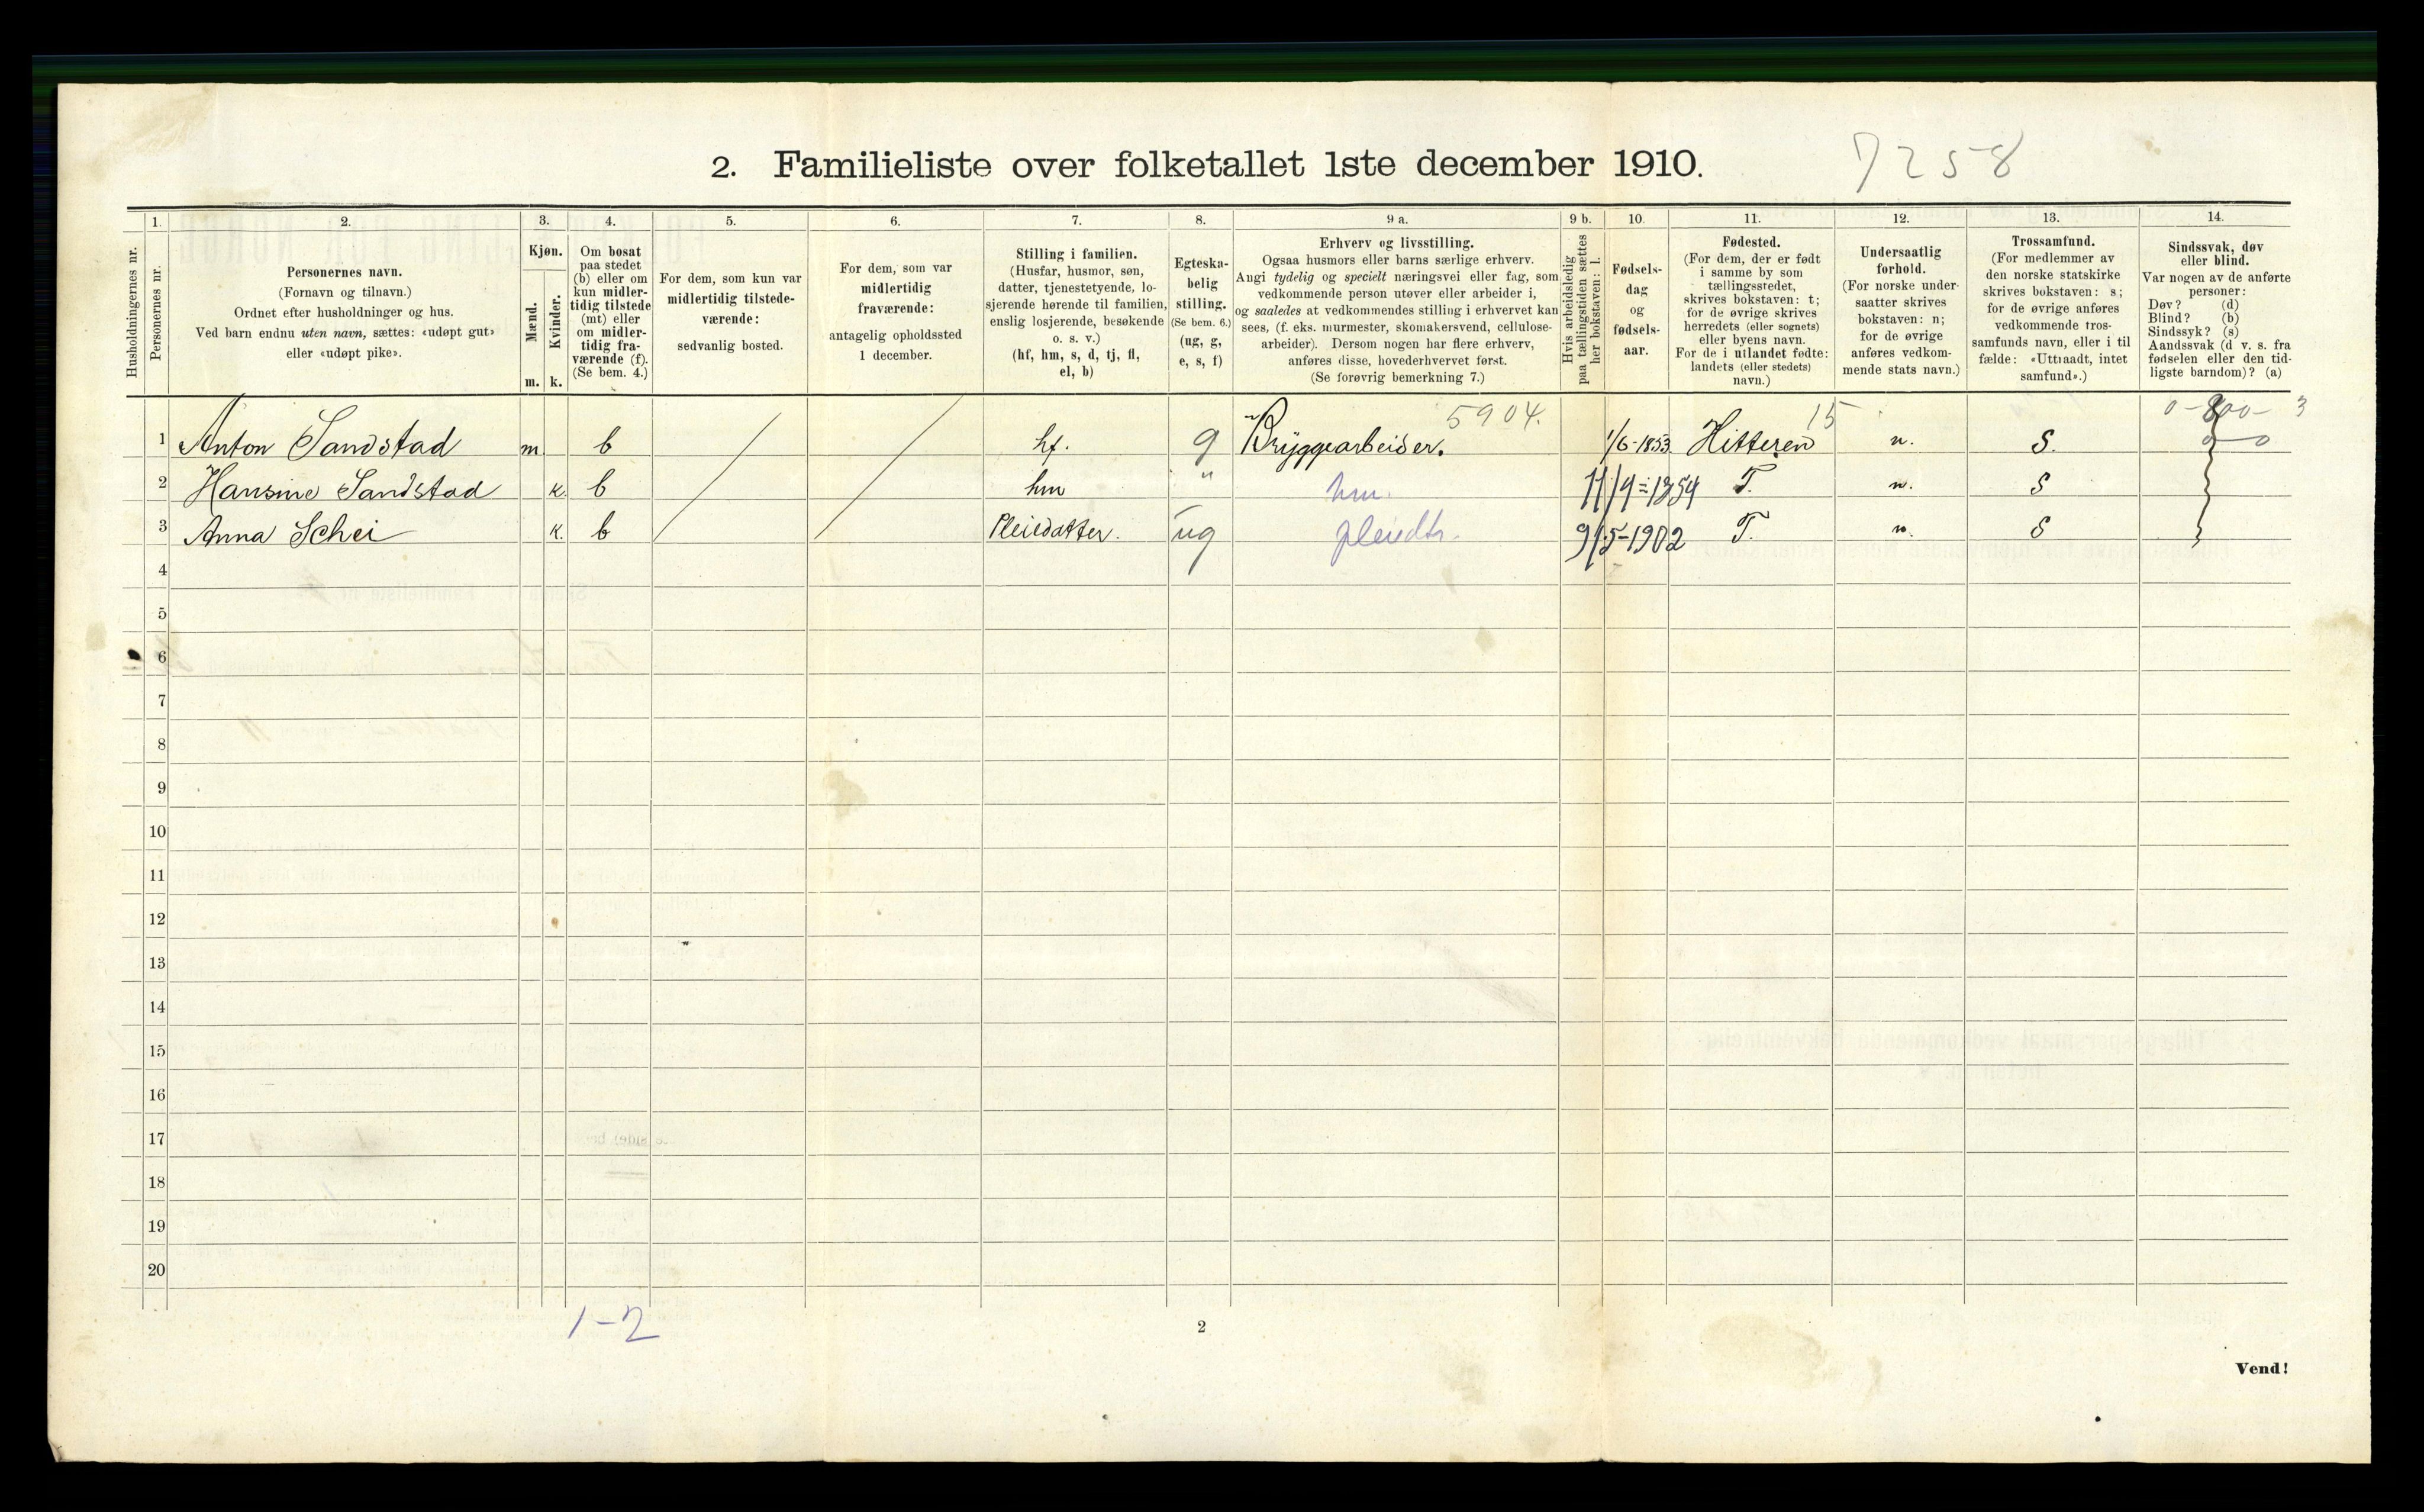 2. Familieliste over folketallet 1ste december 1910.
7258
1. 2. 3. 4. 5. 6. 7. 8. 9 a. 9 b. 10. 11. 12. 13. 14.
Husholdningernes nr.
Personernes nr.
Personernes navn.
(Fornavn og tilnavn.)
Ordnet efter husholdninger og hus.
Ved barn endnu uten navn, sættes: «udøpt gut»
eller «udøpt pike».
Kjøn.
Mænd.
Kvinder.
m. k.
Om bosat
paa stedet
(b) eller om
kun midler-
tidig tilstede
(mt) eller
om midler-
tidig fra-
værende (f).
(Se bem. 4.)
For dem, som kun var
midlertidig tilstede-
værende:
sedvanlig bosted.
For dem, som var
midlertidig
fraværende:
antagelig opholdssted
1 december.
Stilling i familien.
(Husfar, husmor, søn,
datter, tjenestetyende, lo-
sjerende hørende til familien,
enslig losjerende, besøkende
o. s. v.)
(hf, hm, s, d, tj, fl,
el, b)
Egteska-
belig
stilling.
(Se bem. 6.)
(ug, g,
e, s, f)
Erhverv og livsstilling.
Ogsaa husmors eller barns særlige erhverv.
Angi tydelig og specielt næringsvei eller fag, som
vedkommende person utøver eller arbeider i,
og saaledes at vedkommendes stilling i erhvervet kan
sees, (f. eks. murmester, skomakersvend, cellulose-
arbeider). Dersom nogen har flere erhverv,
anføres disse, hovederhvervet først.
(Se forøvrig bemerkning 7.)
Hvis arbeidsledig
paa tællingstiden sættes
her bokstaven: l.
Fødsels-
dag
og
fødsels-
aar.
Fødested.
(For dem, der er født
i samme by som
tællingsstedet,
skrives bokstaven: t;
for de øvrige skrives
herredets (eller sognets)
eller byens navn.
For de i utlandet fødte:
landets (eller stedets)
navn.)
Undersaatlig
forhold.
(For norske under-
saatter skrives
bokstaven: n;
for de øvrige
anføres vedkom-
mende stats navn.)
Trossamfund.
(For medlemmer av
den norske statskirke
skrives bokstaven: s;
for de øvrige anføres
vedkommende tros-
samfunds navn, eller i til
fælde: «Uttraadt, intet
samfund».)
Sindssvak, døv
eller blind.
Var nogen av de anførte
personer:
Døv? (d)
Blind? (b)
Sindssyk? (s)
Aandssvak (d v. s. fra
fødselen eller den tid-
ligste barndom)? (a)
5904. 15
1 Anton Sandstad m b hf. g Bryggearbeider. 1/6-1853 Hitteren n. S.
2 Hansine Sandstad k. b hm " hm. 11/9=1854 T. n. S
3 Anna Schei k. b Pleiedatter. ug pleiedtr. 9/5-1902 T. n. S
4
5
6
7
8
9
10
11
12
13
14
15
16
17
18
19
20
1-2
2
Vend!